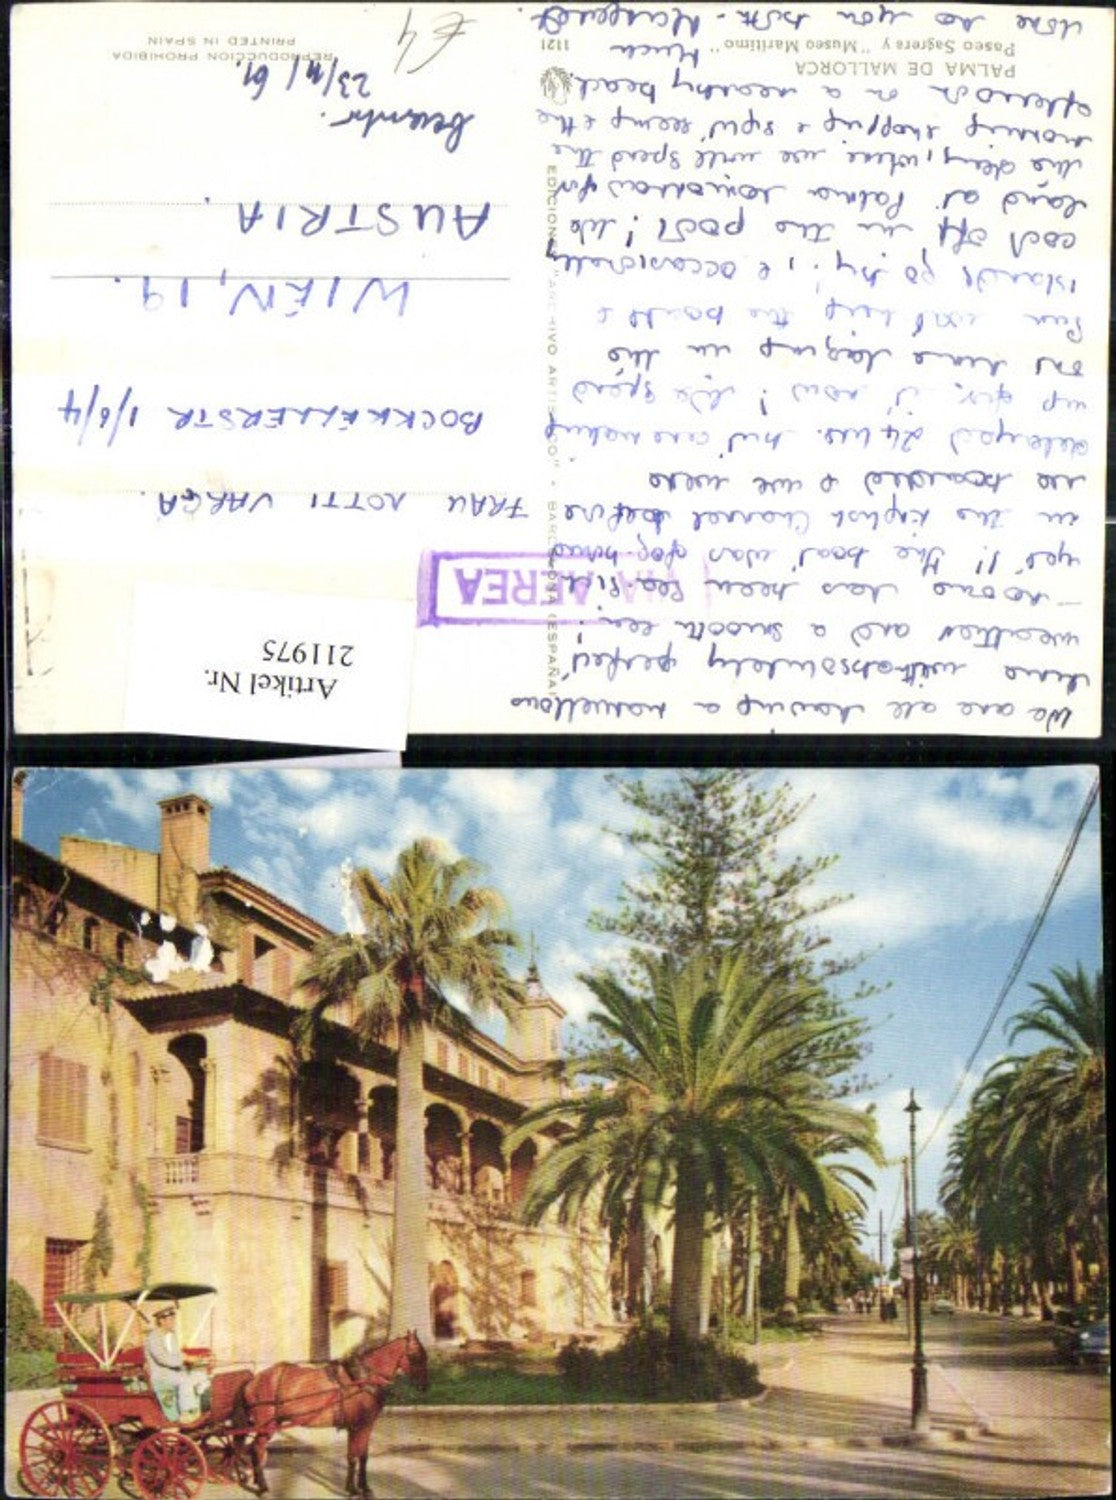 We are all having a marvellous
time with absolutely perfect
weather and a smooth sea;
– no one has been sea-sick
yet!! The boat was fog-bound
in the English Channel before
we boarded & we were
delayed 24 hrs. but are making
up for it now! We spend
our time lazing in the
sun and the boats &
islands go by; & occasionally
cast off in the pool! We
land at Palma tomorrow for
the day, where we will spend the
morning shopping & sight seeing & the
afternoon on a nearby beach.
Much
love to you both - Margaret.
PALMA DE MALLORCA
Paseo Sagrera y "Museo Marítimo"
1121
EDICIONES "ARCHIVO ARTISTICO" - BARCELONA (ESPAÑA)
VIA AEREA
FRAU LOTTI VARGA.
BOCKKELLERSTR 1/6/4
WIEN, 19.
AUSTRIA.
REPRODUCCION PROHIBIDA
PRINTED IN SPAIN
£4
Artikel Nr.
211975